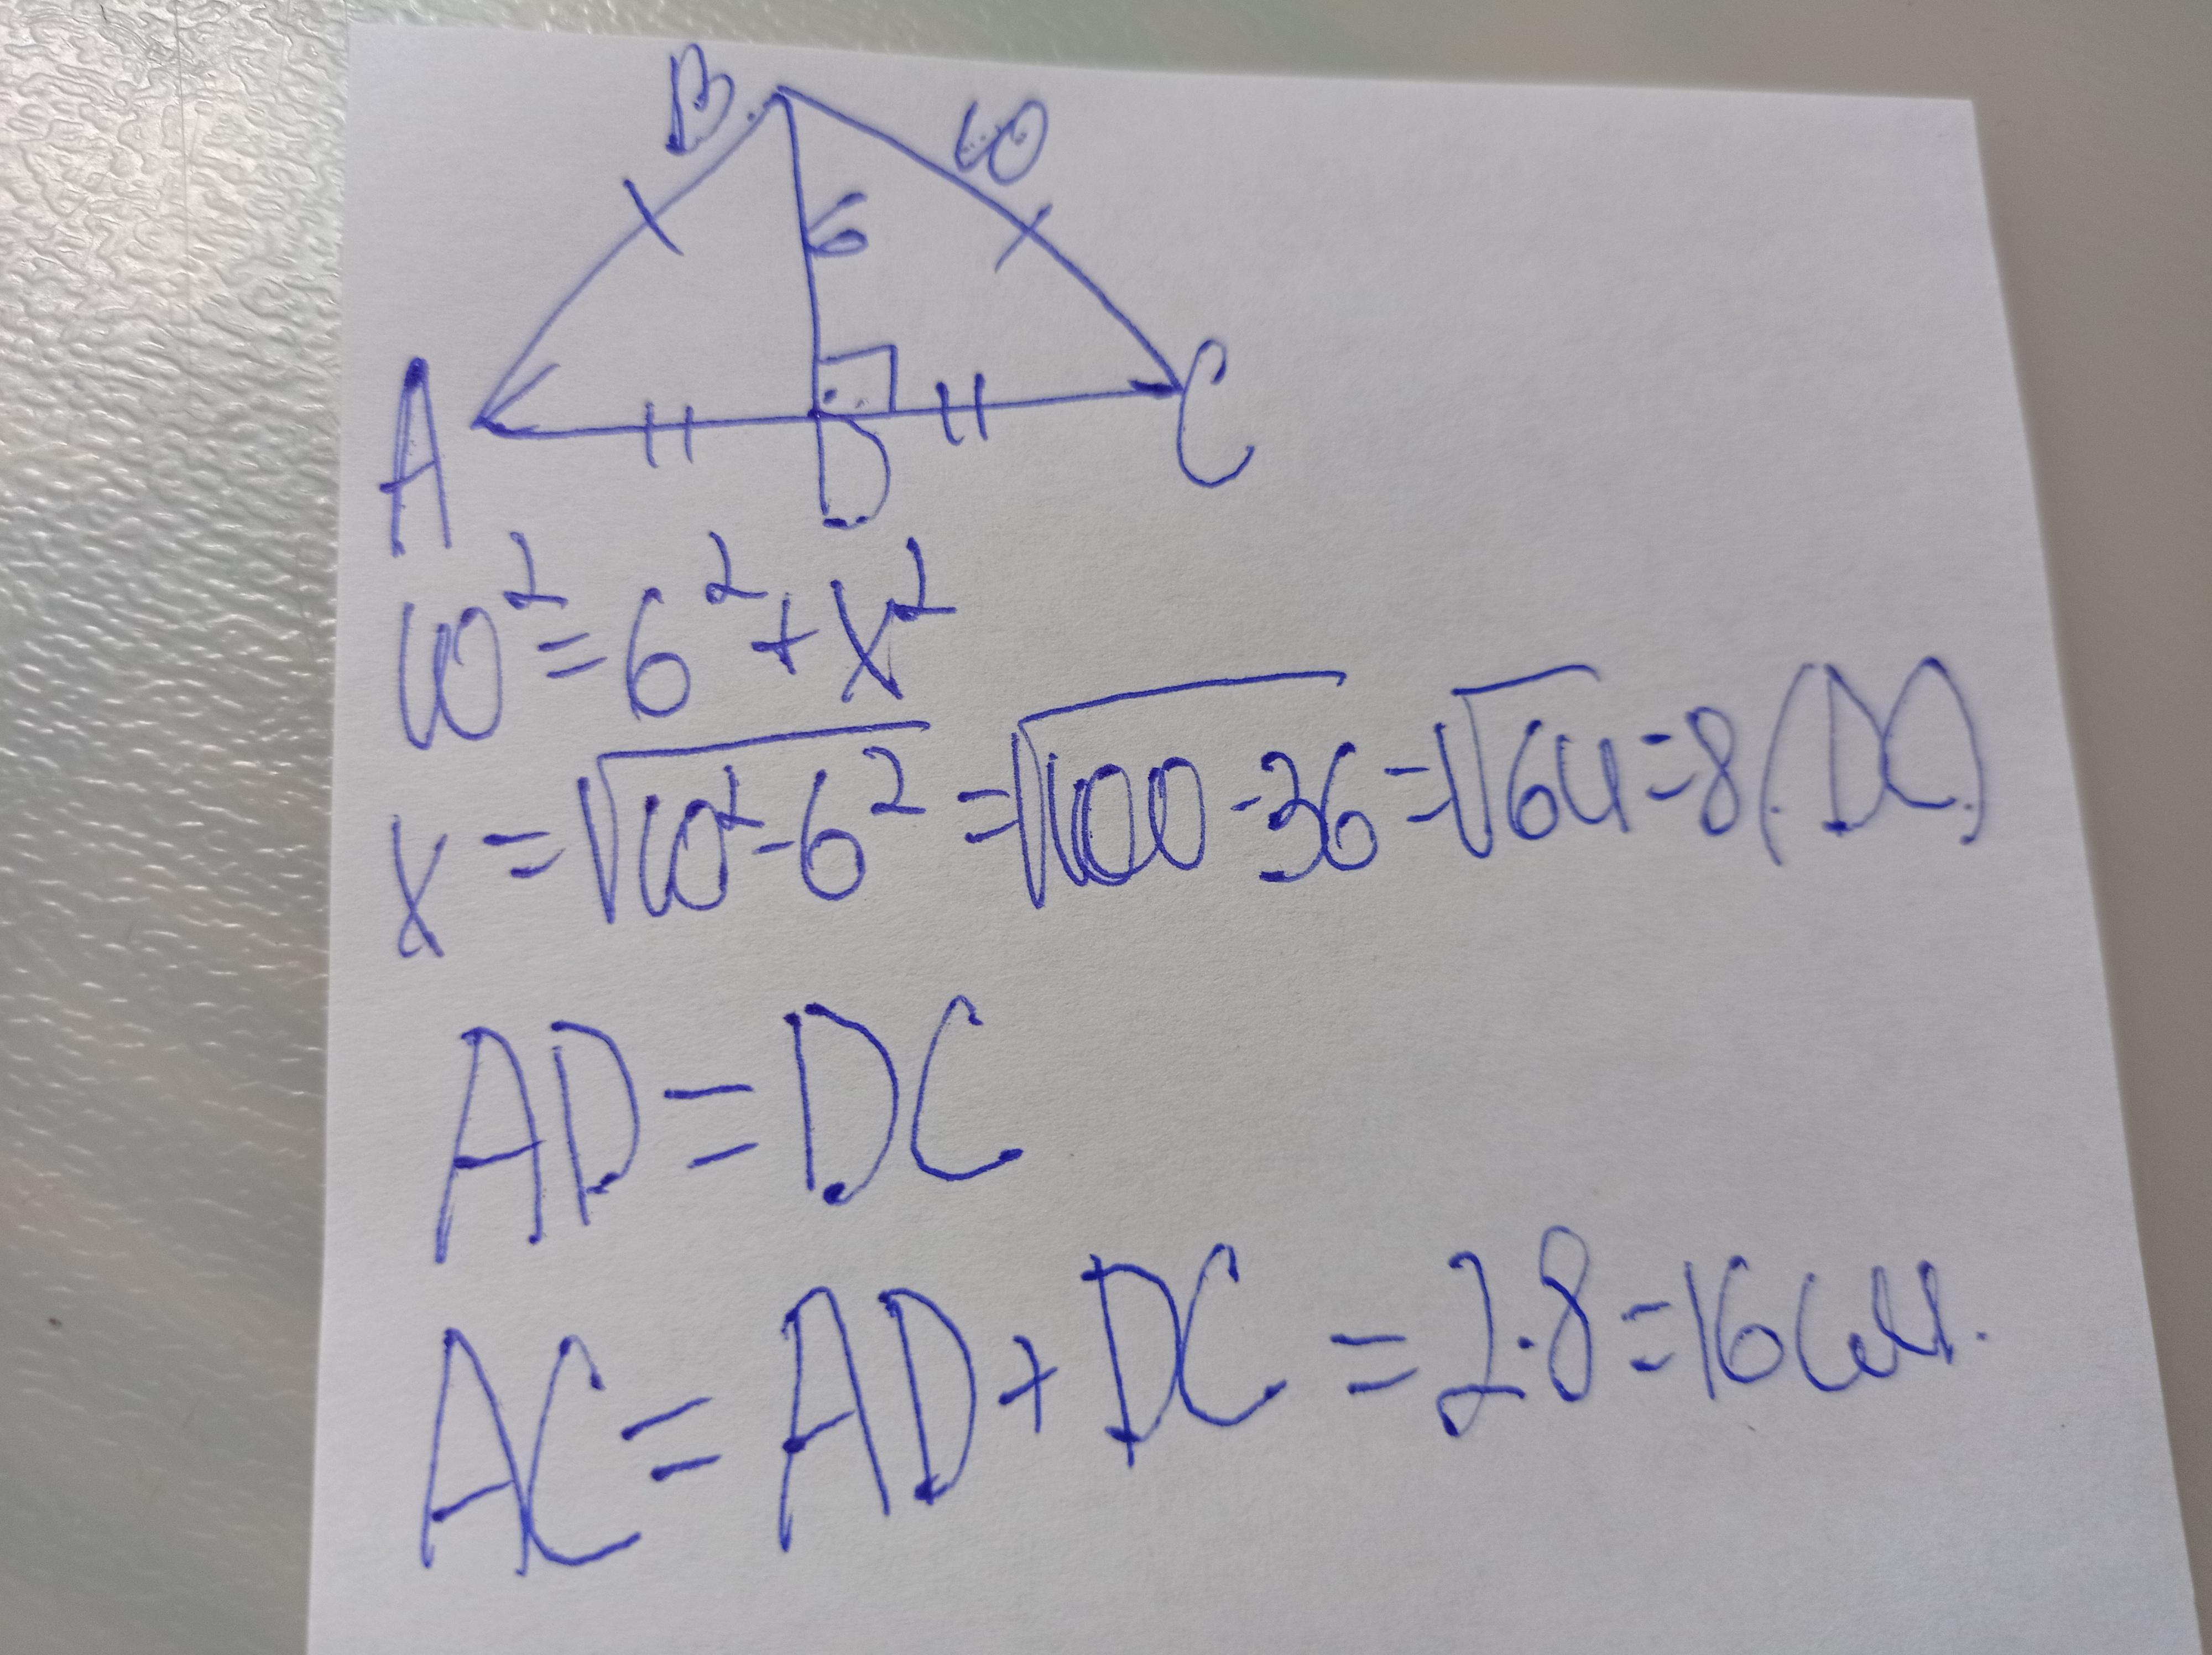 B
10
6
A
D
C
10² = 6² + x²
x = √10² - 6² = √100 - 36 = √64 = 8 (DC)
AD = DC
AC = AD + DC = 2·8 = 16 см.